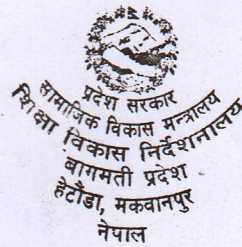 प्रदेश सरकार
सामाजिक विकास मन्त्रालय
शिक्षा विकास निर्देशनालय
बागमती प्रदेश
हेटौंडा, मकवानपुर
नेपाल